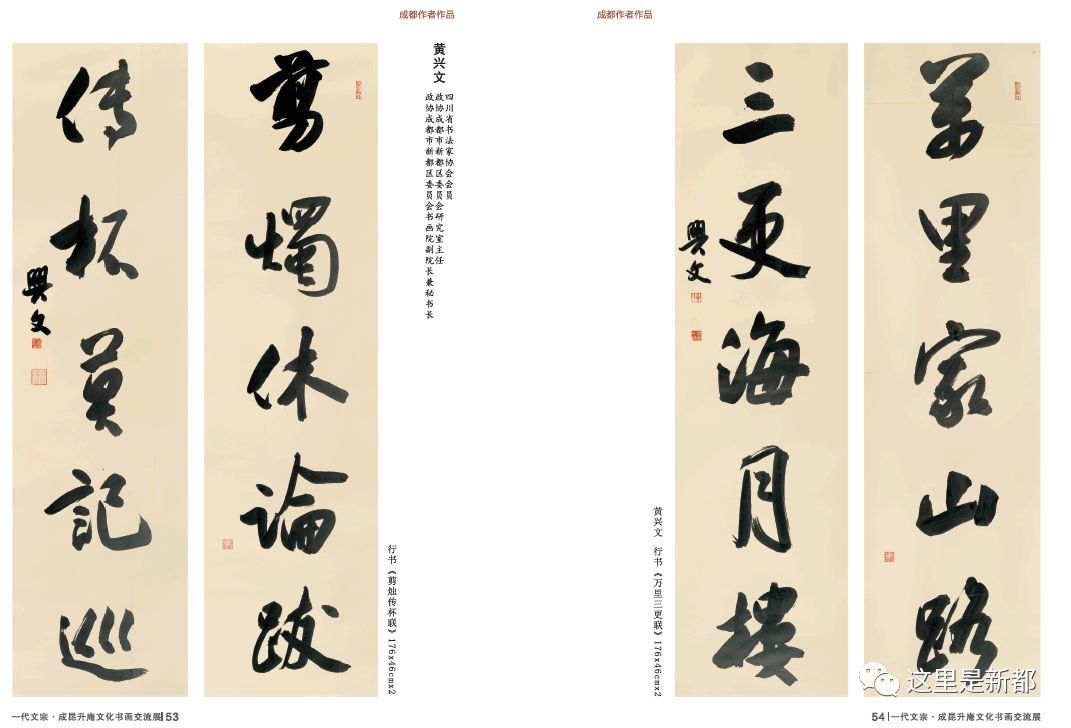 成都作者作品
剪燭休論跋
傳杯莫記巡
興文
黄兴文
四川省书法家协会会员
政协成都市新都区委员会研究室主任
政协成都市新都区委员会书画院副院长兼秘书长
行书《剪烛传杯联》176x46cmx2
一代文宗·成昆升庵文化书画交流展 53
成都作者作品
萬里家山路
三更海月樓
興文
黄兴文 行书《万里三更联》176x46cmx2
54 一代文宗·成昆升庵文化书画交流展
这里是新都